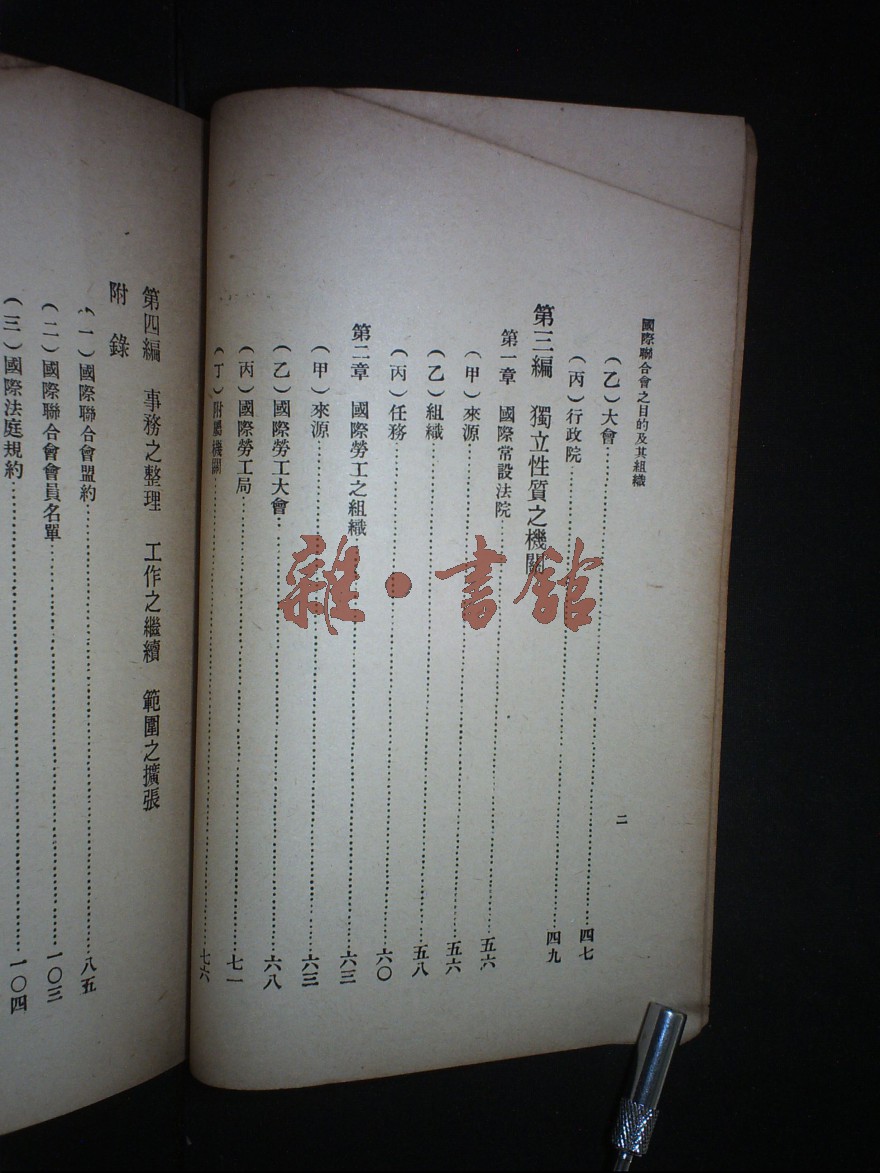 國際聯合會之目的及其組織
二
（乙）大會……四七
（丙）行政院……四九
第三編 獨立性質之機關
第一章 國際常設法院……五六
（甲）來源……五六
（乙）組織……五八
（丙）任務……六〇
第二章 國際勞工之組織……六三
（甲）來源……六三
（乙）國際勞工大會……六八
（丙）國際勞工局……七一
（丁）附屬機關……七六
第四編 事務之整理 工作之繼續 範圍之擴張
附錄
（一）國際聯合會盟約……八五
（二）國際聯合會會員名單……一〇三
（三）國際法庭規約……一〇四
雜·書館